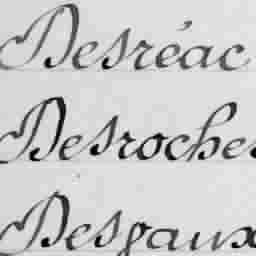 Desréac
Desroches
Desgaux